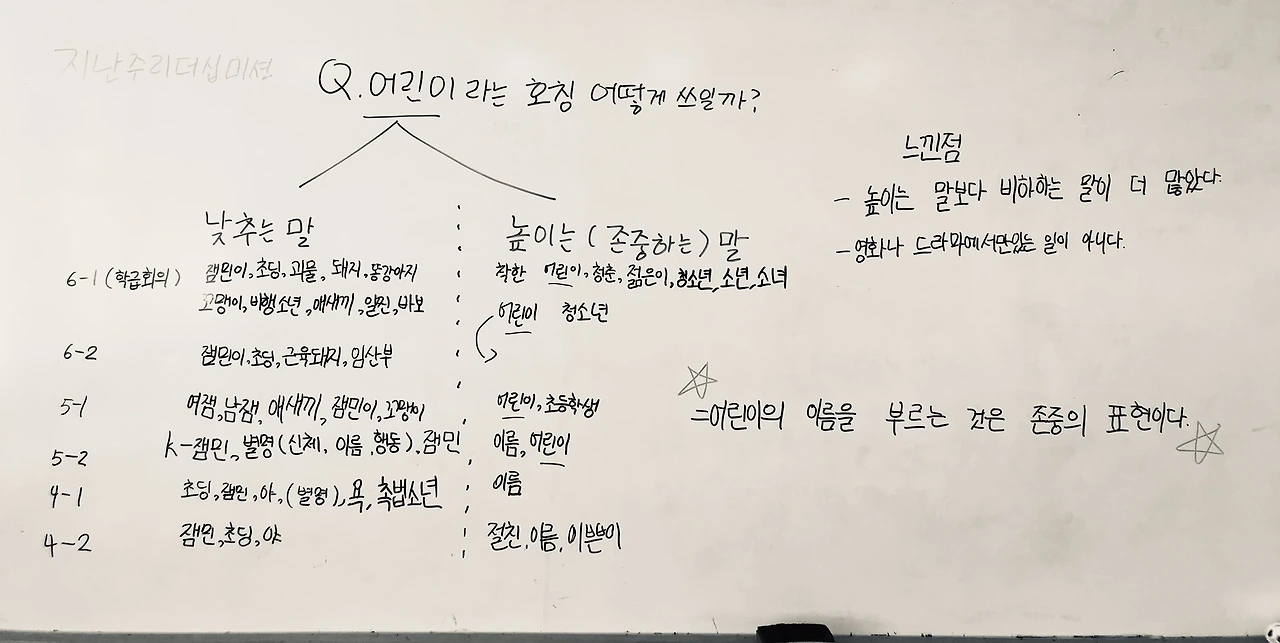 지난주리더십미션
Q. 어린이 라는 호칭 어떻게 쓰일까?
낮추는 말
높이는 (존중하는) 말
6-1 (학급회의) 잼민이, 초딩, 괴물, 돼지, 똥강아지
꼬맹이, 비행소년, 애새끼, 일진, 바보
착한 어린이, 청춘, 젊은이, 청소년, 소년, 소녀
어린이 청소년
6-2 잼민이, 초딩, 근육돼지, 임산부
5-1 여잼, 남잼, 애새끼, 잼민이, 꼬맹이
어린이, 초등학생
5-2 K-잼민, 별명(신체, 이름, 행동), 잼민
이름, 어린이
4-1 초딩, 잼민, 야, (별명), 욕, 촉법소년
이름
4-2 잼민, 초딩, 야
절친, 이름, 이쁜이
느낀점
- 높이는 말보다 비하하는 말이 더 많았다.
- 영화나 드라마에서만있는 일이 아니다.
=어린이의 이름을 부르는 것은 존중의 표현이다.